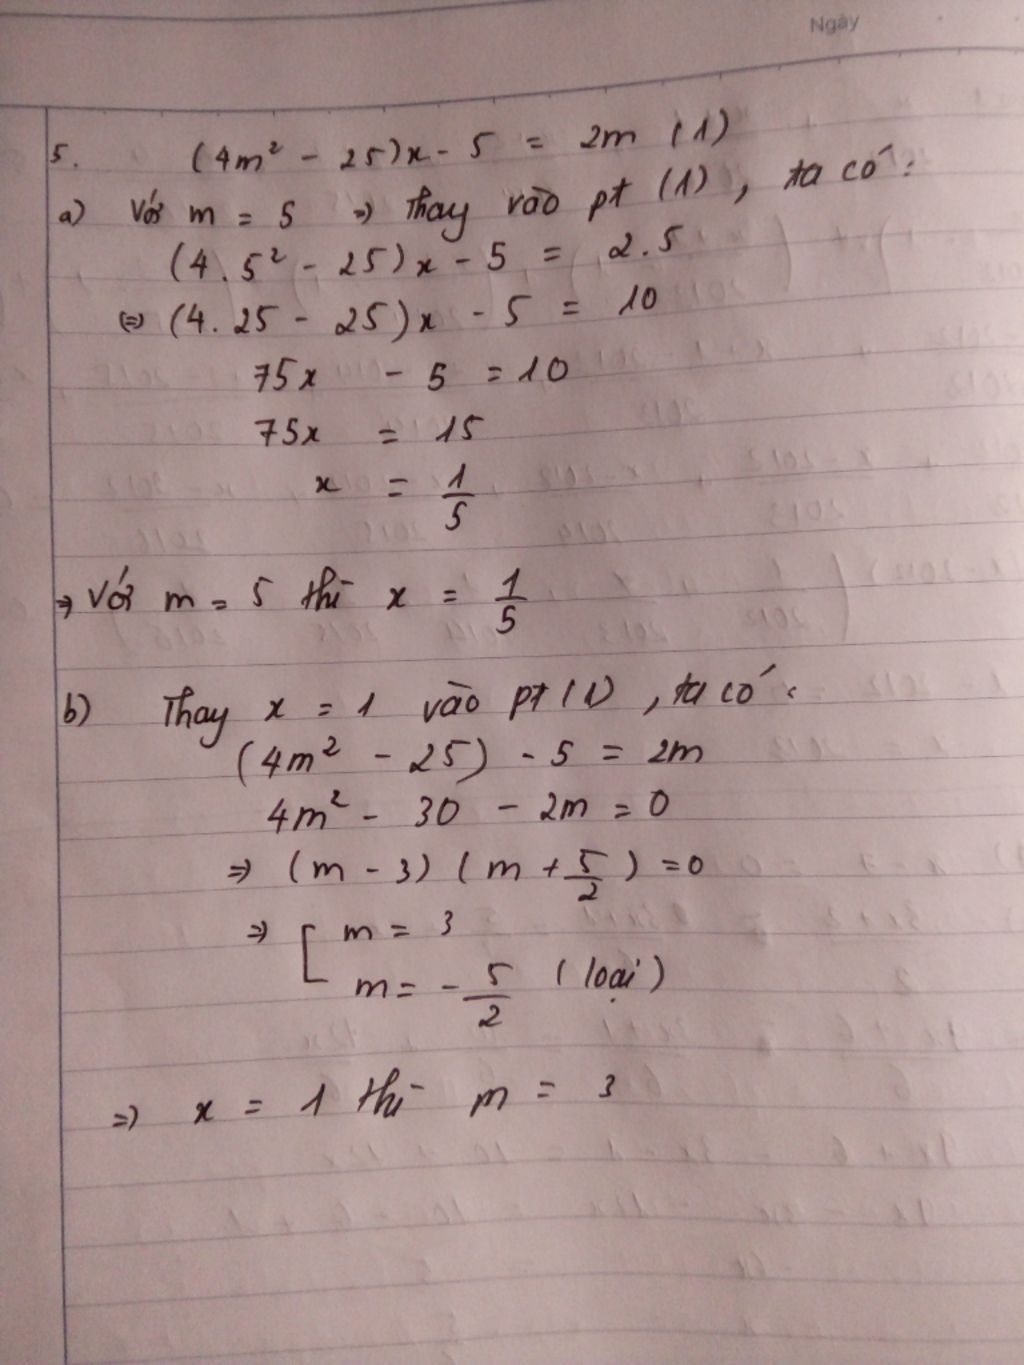 Ngày
5. (4m² - 25)x - 5 = 2m (1)
a) Với m = 5 => Thay vào pt (1), ta có:
(4.5² - 25)x - 5 = 2.5
(=) (4.25 - 25)x - 5 = 10
75x - 5 = 10
75x = 15
x = 1/5
=> Với m = 5 thì x = 1/5
b) Thay x = 1 vào pt (1), ta có:
(4m² - 25) - 5 = 2m
4m² - 30 - 2m = 0
=> (m - 3) (m + 5/2) = 0
=> [ m = 3
m = - 5/2 (loại)
=> x = 1 thì m = 3